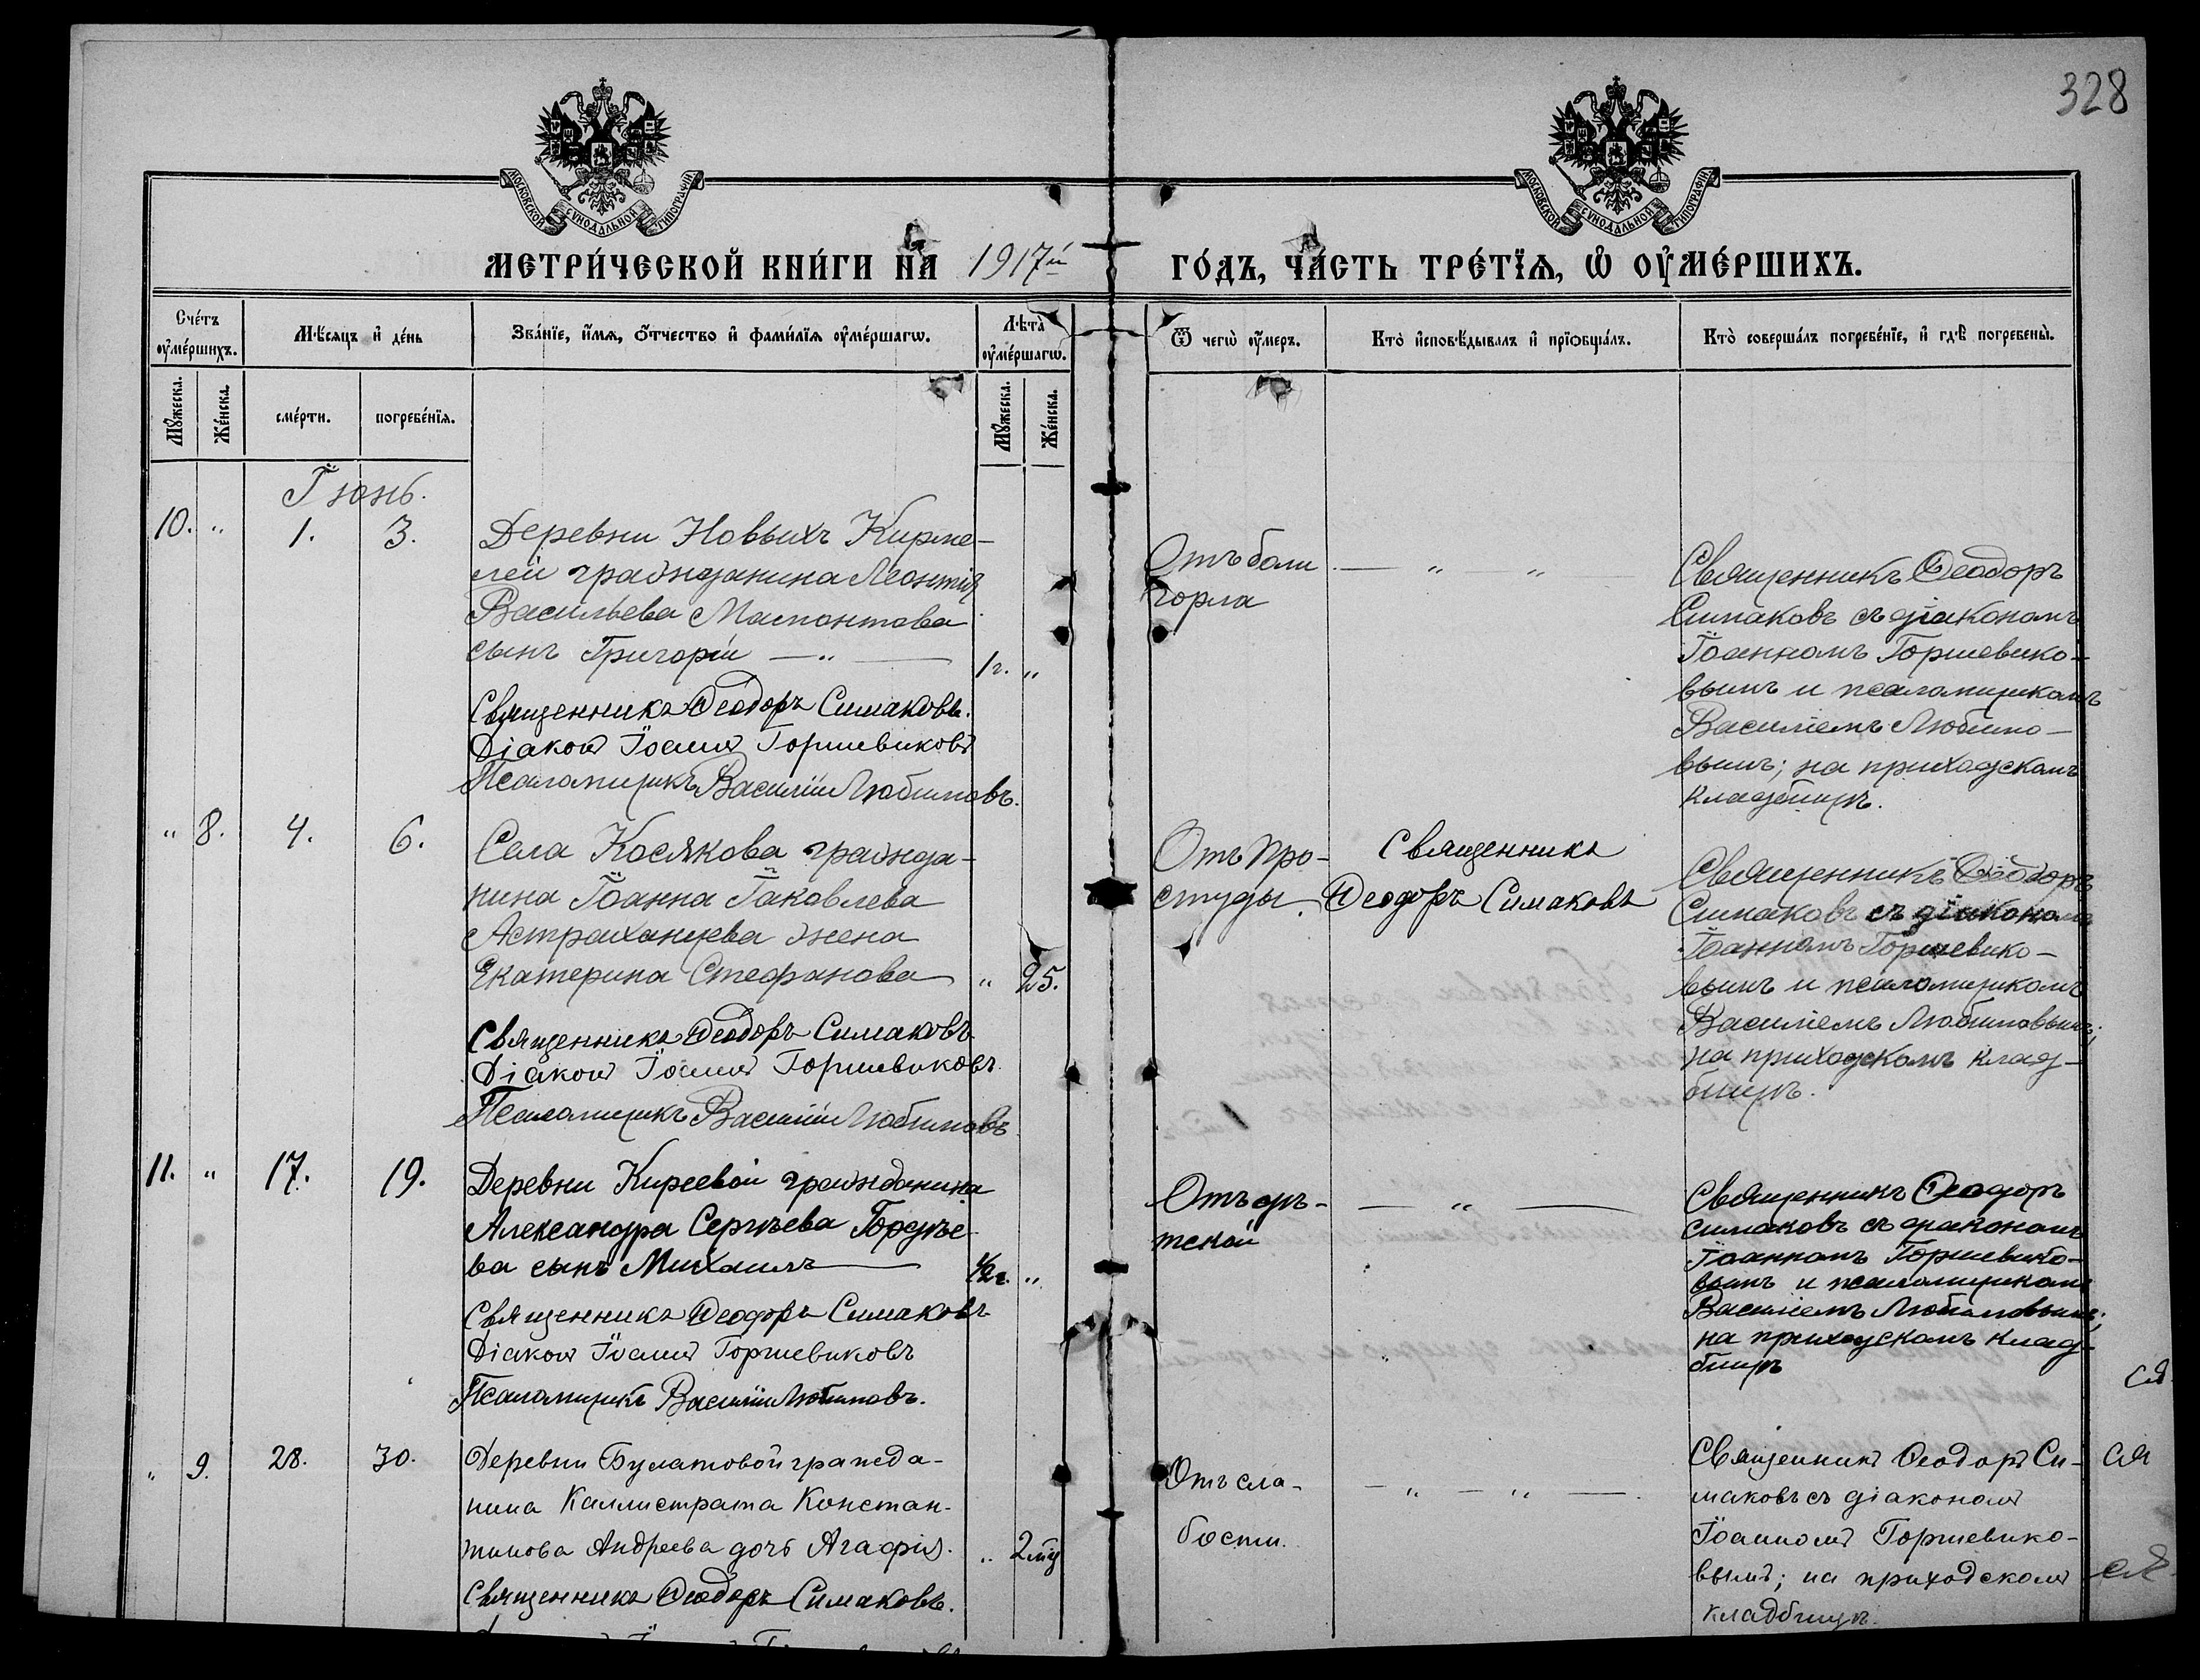 328
МОСКОВСКОЙ СѴНОДАЛЬНОЙ ТИПОГРАФІИ
МОСКОВСКОЙ СѴНОДАЛЬНОЙ ТИПОГРАФІИ
МЕТРИ́ЧЕСКОЙ КНИ́ГИ НА 1917й ГО́ДЪ, ЧА́СТЬ ТРЕ́ТЇѦ, Ѡ҆ ОУ҆МЕ́РШИХЪ.
Сче́тъ оу҆ме́ршихъ.
Мѣ́сѧцъ и҆ де́нь
Зва́нїе, и҆́мѧ, ѻ҆́тчество и҆ фами́лїѧ оу҆ме́ршагѡ.
Лѣта̀ оу҆ме́ршагѡ.
Ѿ чегѡ̀ оу҆́меръ.
Кто̀ и҆сповѣ́дывалъ и҆ прїѡбща́лъ.
Кто̀ соверша́лъ погребе́нїе, и҆ гдѣ̀ погребены̀.
Мꙋ́жеска.
Же́нска.
сме́рти.
погребе́нїѧ.
Мꙋ́жеска.
Же́нска.
Іюнь.
10. „ 1. 3.
Деревни Новыхъ Кирме-
лей гражданина Леонтія
Васильева Мамонтова
сынъ Григорій — „ —
1 г. „
Священникъ Ѳеодоръ Симаковъ.
Діаконъ Іоаннъ Горшевиковъ
Псаломщикъ Василій Любимовъ.
Отъ боли
горла
— „ — „ —
Священникъ Ѳеодоръ
Симаковъ съ діакономъ
Іоанномъ Горшевико-
вымъ и псаломщикомъ
Василіемъ Любимо-
вымъ; на приходскомъ
кладбищѣ.
„ 8. 4. 6.
Села Косякова гражда-
нина Іоанна Іаковлева
Астраханцева жена
Екатерина Стефанова
„ 25.
Священникъ Ѳеодоръ Симаковъ
Діаконъ Іоаннъ Горшевиковъ.
Псаломщикъ Василій Любимовъ
Отъ про-
студы.
Священникъ
Ѳеодоръ Симаковъ
Священникъ Ѳеодоръ
Симаковъ съ діакономъ
Іоанномъ Горшевико-
вымъ и псаломщикомъ
Василіемъ Любимовымъ;
на приходскомъ клад-
бищѣ.
11. „ 17. 19.
Деревни Киреевой гражданина
Александра Сергѣева Гордѣе-
ва сынъ Михаилъ —
½ г. „
Священникъ Ѳеодоръ Симаковъ
Діаконъ Іоаннъ Горшевиковъ
Псаломщикъ Василій Любимовъ.
Отъ дѣ-
тской
— „ —
Священникъ Ѳеодоръ
Симаковъ съ діакономъ
Іоанномъ Горшевико-
вымъ и псаломщикомъ
Василіемъ Любимовымъ;
на приходскомъ клад-
бищѣ
„ 9. 28. 30.
Деревни Булатовой гражда-
нина Каллистрата Констан-
тинова Андреева дочь Агафія.
„ 2
Священникъ Ѳеодоръ Симаковъ.
Отъ сла-
бости.
— „ — „ —
Священникъ Ѳеодоръ Си-
маковъ съ діакономъ
Іоанномъ Горшевико-
вымъ; на приходскомъ
кладбищѣ.